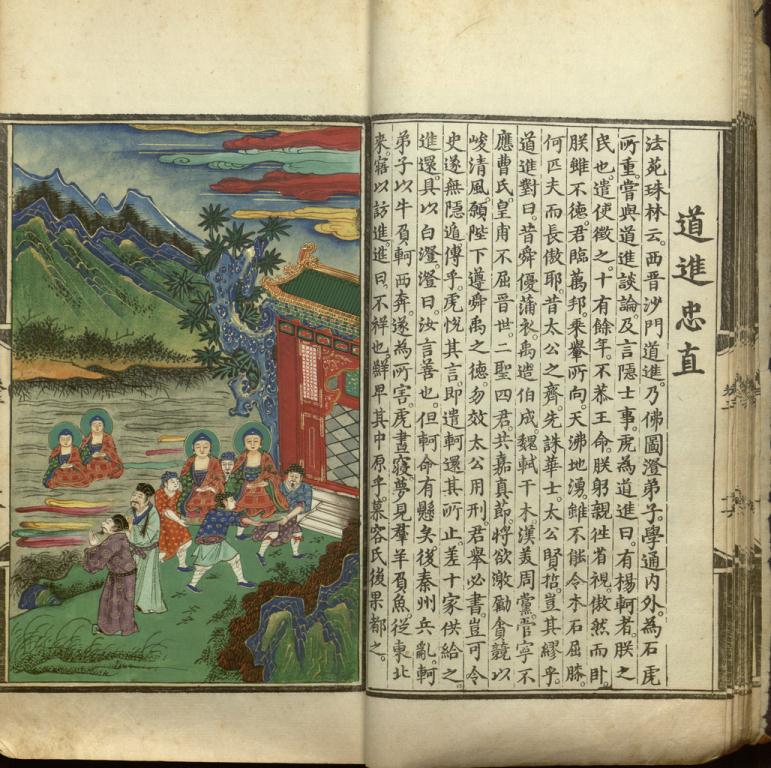 道進忠直
法苑珠林云。西晉沙門道進。乃佛圖澄弟子。學通內外。為石虎
所重。嘗與道進談論。及言隱士事。虎為道進曰。有楊軻者。朕之
民也。遣使徵之。十有餘年。不恭王命。朕躬親往省視。傲然而卧。
朕雖不德。君臨萬邦。乘轝所向。天沸地湧。雖不能令木石屈膝。
何匹夫而長傲耶。昔太公之齊。先誅華士。太公賢哲。豈其繆乎。
道進對曰。昔舜優蒲衣。禹造伯成。魏軾干木。漢美周黨。管寧不
應曹氏。皇甫不屈晉世。二聖四君。共嘉真節。將欲激勵貪競。以
峻清風。願陛下遵舜禹之德。勿效太公用刑。君舉必書。豈可令
史遂無隱遁傳乎。虎悅其言。即遣軻還其所止。差十家供給之。
進還。具以白澄。澄曰。汝言善也。但軻命有懸矣。後秦州兵亂。軻
弟子以牛負軻西奔。遂為所害。虎晝寢。夢見羣羊負魚。從東北
來。寤以訪進。進曰。不祥也。鮮卑其中原乎。慕容氏後果都之。